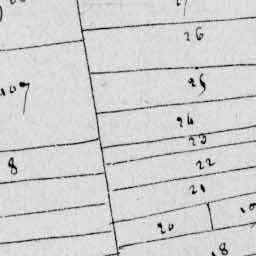 26
25
107
24
23
8
22
21
20 19
18